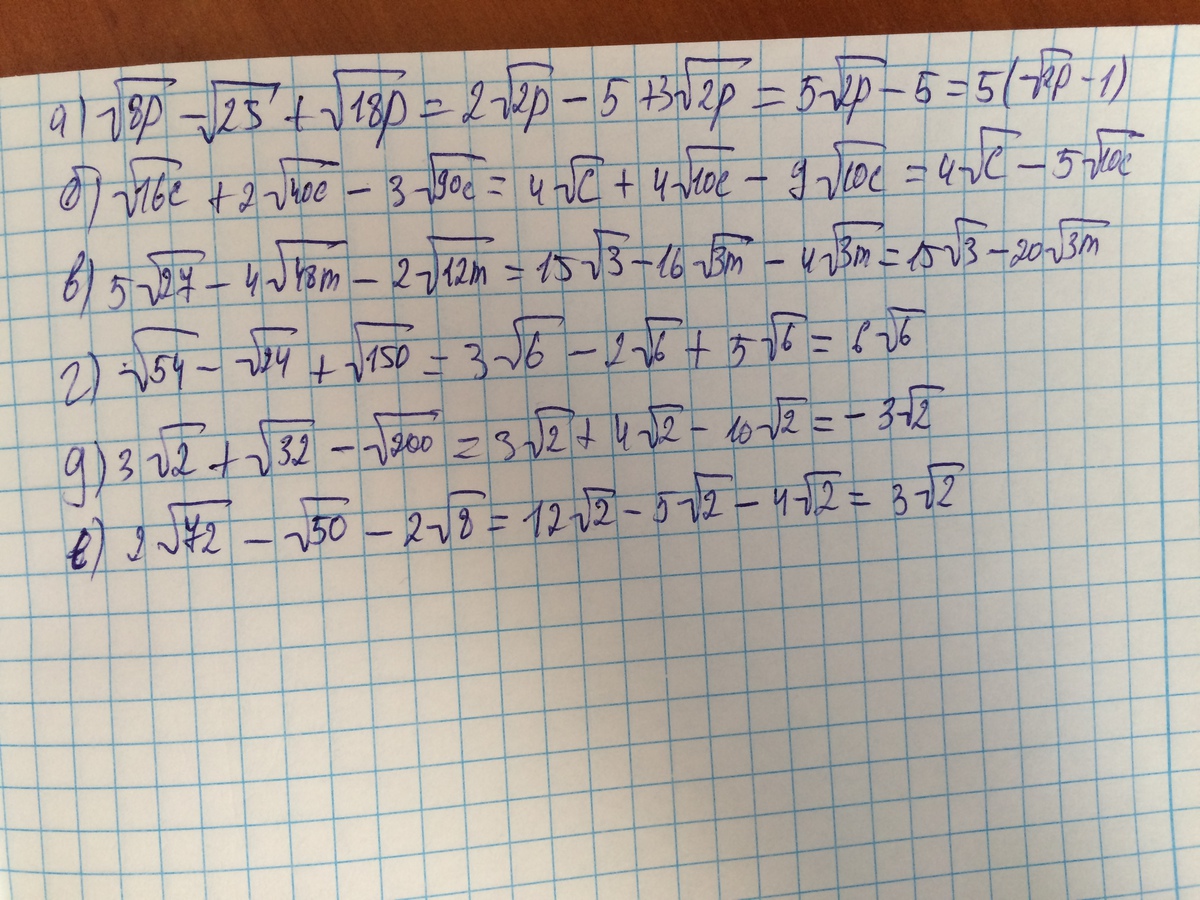 а) √8p − √25 + √18p = 2√2p − 5 + 3√2p = 5√2p − 5 = 5(√2p − 1)
б) √16c + 2√40c − 3√90c = 4√c + 4√10c − 9√10c = 4√c − 5√10c
в) 5√27 − 4√48m − 2√12m = 15√3 − 16√3m − 4√3m = 15√3 − 20√3m
г) √54 − √24 + √150 = 3√6 − 2√6 + 5√6 = 6√6
д) 3√2 + √32 − √200 = 3√2 + 4√2 − 10√2 = −3√2
е) 2√72 − √50 − 2√8 = 12√2 − 5√2 − 4√2 = 3√2